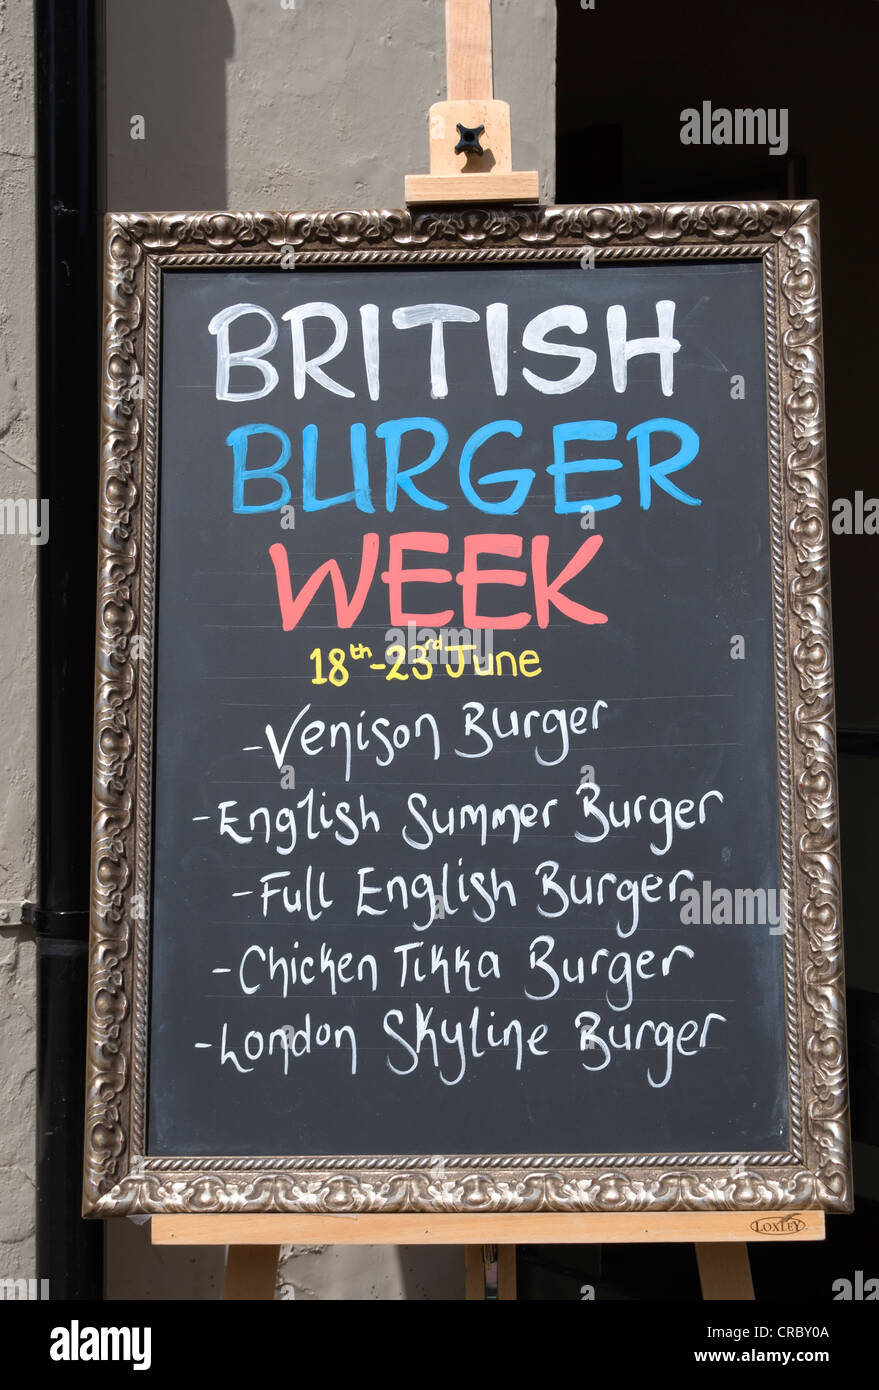 BRITISH
BURGER
WEEK
18th-23rd June
-Venison Burger
-English Summer Burger
-Full English Burger
-Chicken Tikka Burger
-London Skyline Burger
LOXLEY
alamy
Image ID: CRBY0A
www.alamy.com